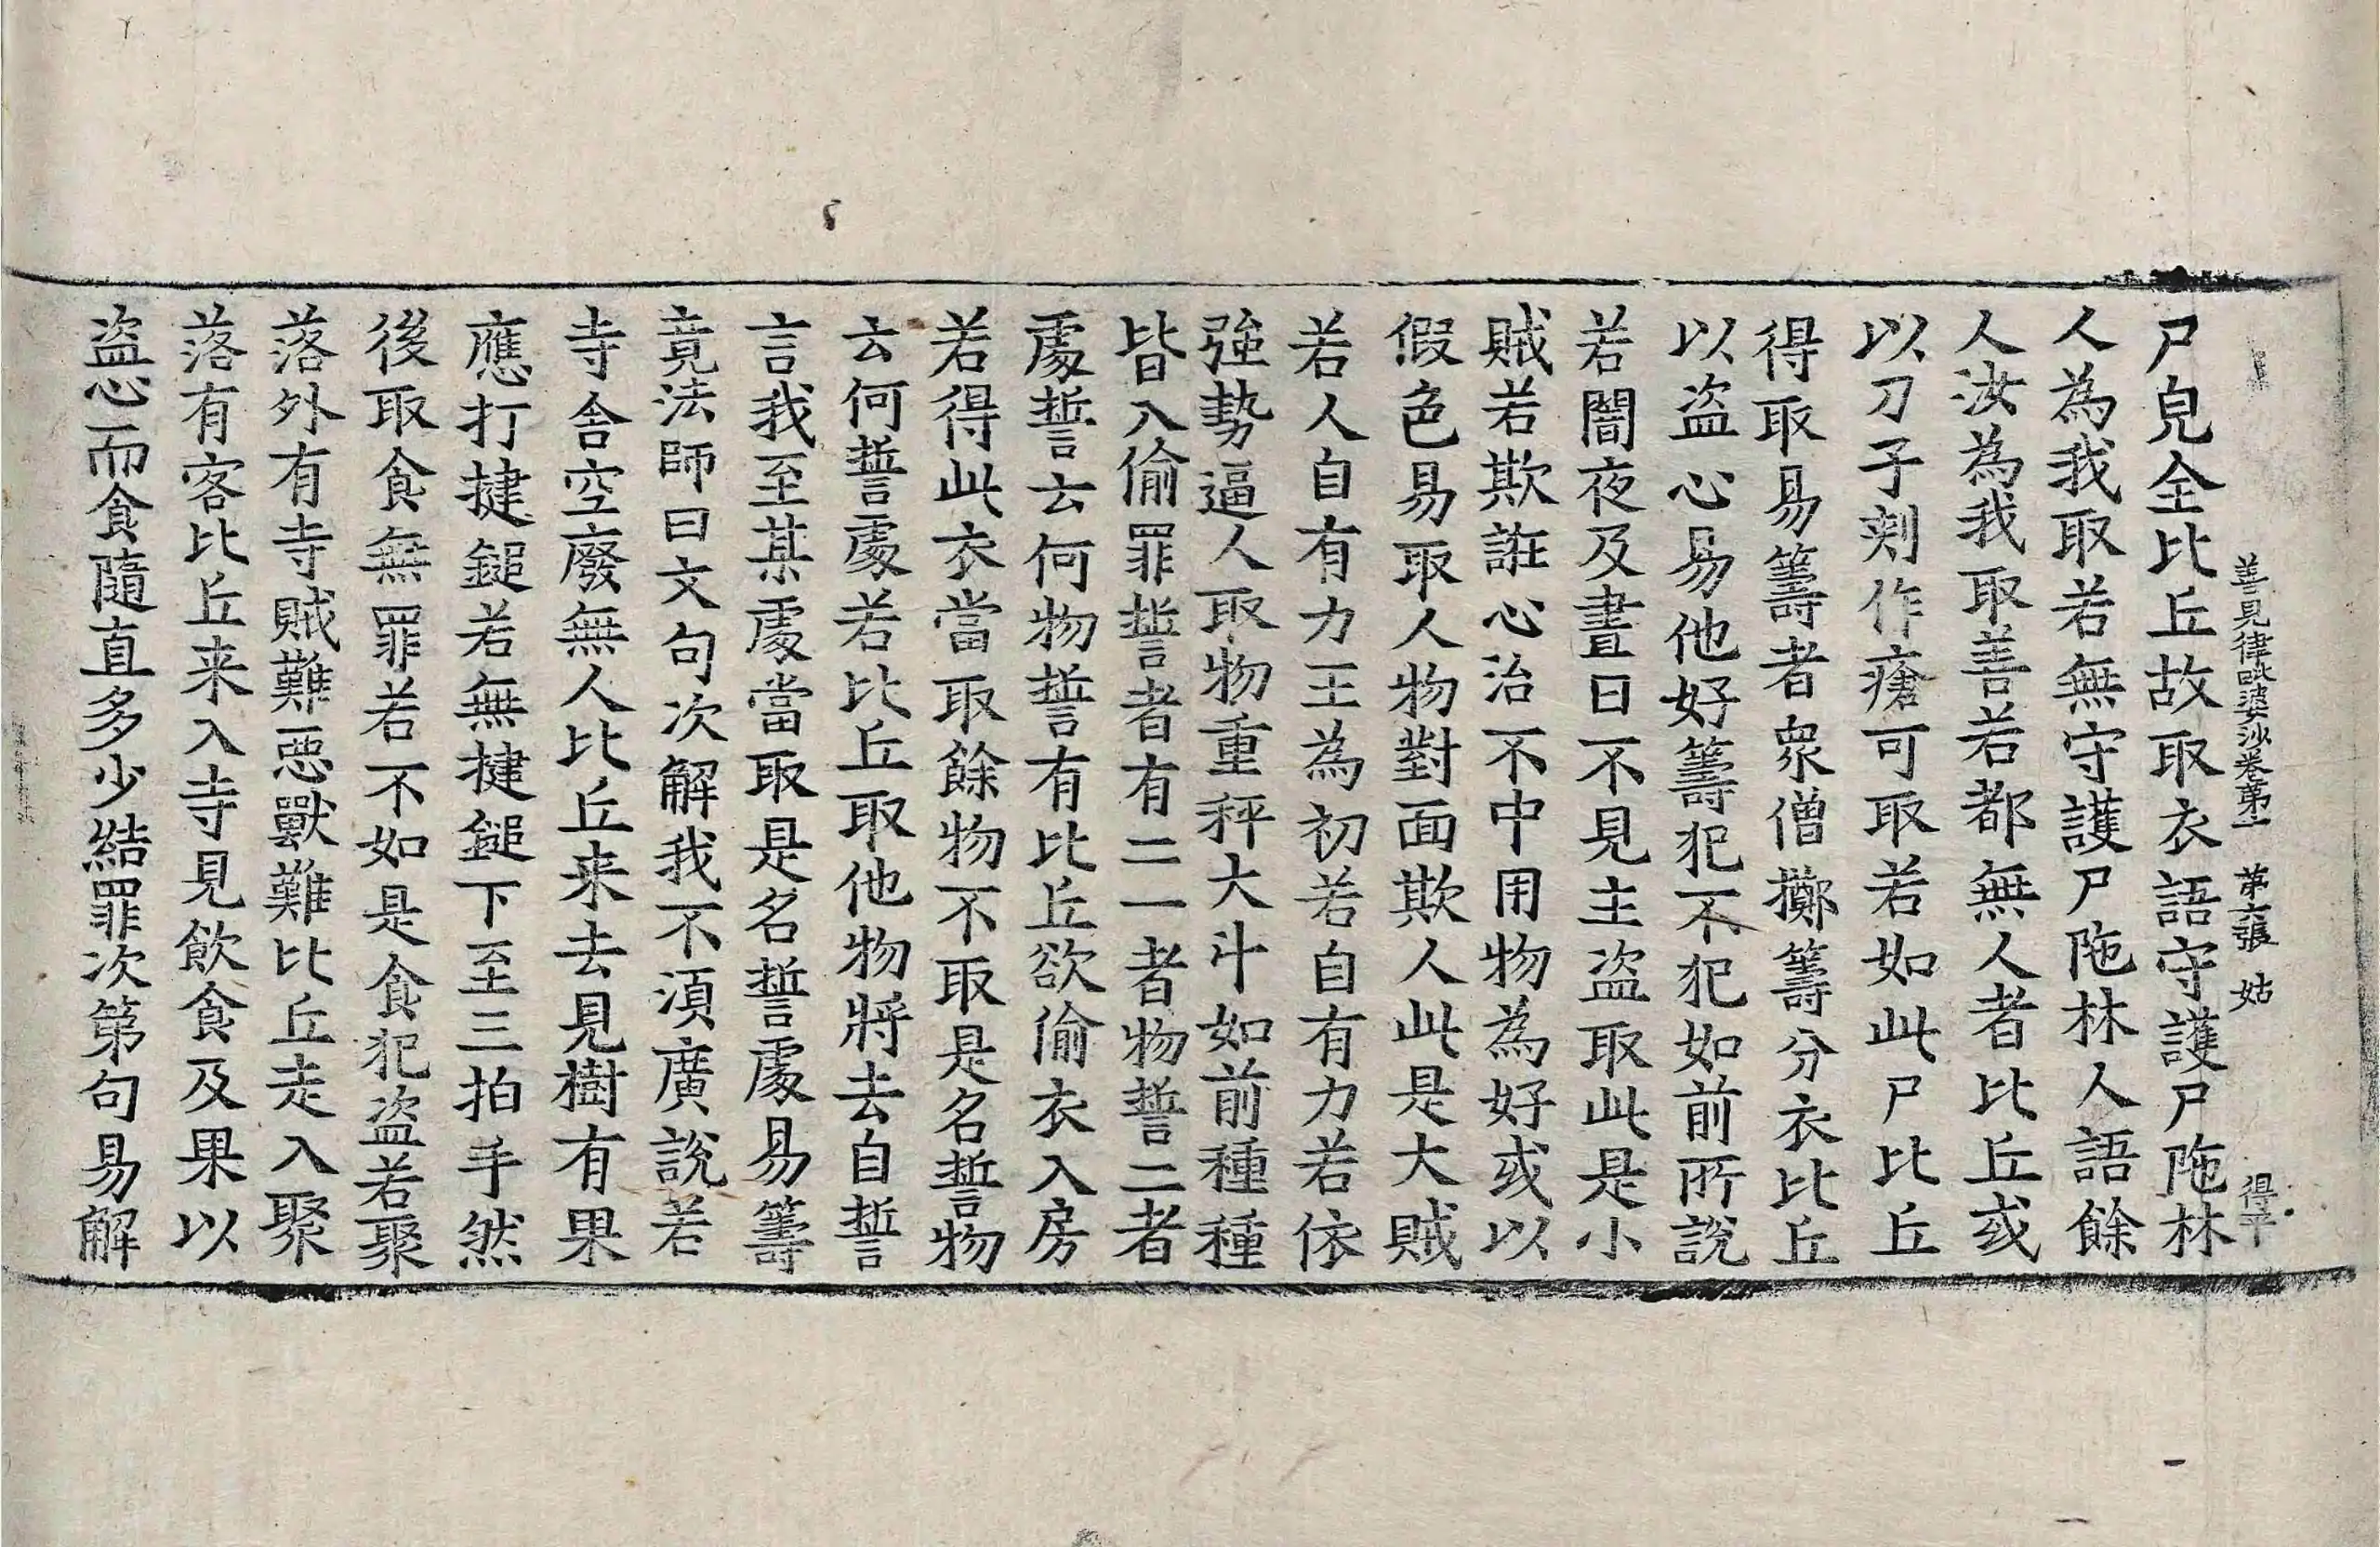 善見律毗婆沙卷第十一 第六張 姑 得平
尸皃全比丘故取衣語守護尸陁林
人為我取若無守護尸陁林人語餘
人汝為我取善若都無人者比丘或
以刀子刾作瘡可取若如此尸比丘
得取易籌者衆僧擲籌分衣比丘
以盗心易他好籌犯不犯如前所說
若闇夜及晝日不見主盗取此是小
賊若欺誑心治不中用物為好或以
假色易取人物對面欺人此是大賊
若人自有力王為初若自有力若依
強勢逼人取物重秤大斗如前種種
皆入偷罪誓者有二一者物誓二者
處誓云何物誓有比丘欲偷衣入房
若得此衣當取餘物不取是名誓物
云何誓處若比丘取他物將去自誓
言我至某處當取是名誓處易籌
竟法師曰文句次解我不湏廣說若
寺舍空廢無人比丘来去見樹有果
應打揵鎚若無揵鎚下至三拍手然
後取食無罪若不如是食犯盗若聚
落外有寺賊難惡獸難比丘走入聚
落有客比丘来入寺見飲食及果以
盗心而食隨直多少結罪次第句易解